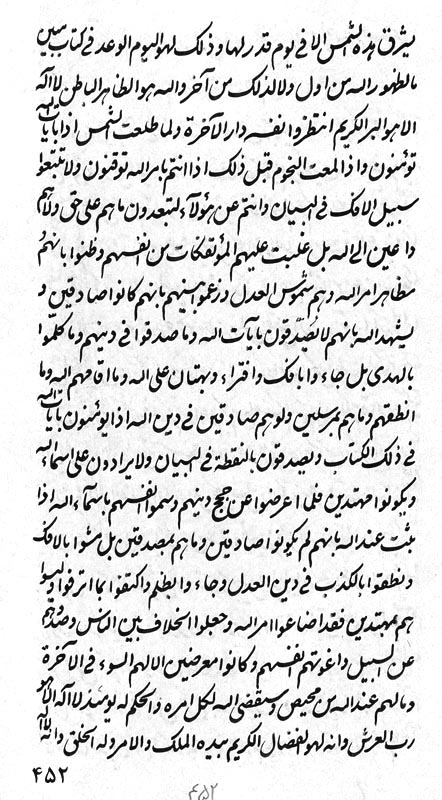 يشرق هذه الشمس الا في يوم قدر لها و ذلك لهو اليوم الوعد في كتاب مبين
ما لظهور الله من اول ولا لذلك من آخر والله هو الظاهر الباطن لا اله
الا هو البر الكريم انتظروا نفسه دار الآخرة و لما طلعت الشمس اذا بايات الله
تؤمنون واذا لمعت النجوم قبل ذلك اذا انتم بامر الله توقنون ولا تتبعوا
سبيل الافك في البيان وانتم عن هؤلآء لتبعدون ما هم على حق ولا هم
داعين الى الله بل غلبت عليهم المؤتفكات من انفسهم وظنوا بانهم
مظاهر امر الله وهم شموس العدل وزعموا بينهم بانهم كانوا صادقين و
يشهد الله بانهم لا يصدقون بايآت الله وما صدقوا في دينهم وما كلموا
بالهدى بل جاءوا بافك وافتراء وبهتان على الله وما اقامهم الله وما
انطقهم وما هم بمرسلين ولو هم صادقين في دين الله اذا يؤمنون بايات الله
في ذلك الكتاب ويصدقون بالنقطة في البيان ولا يرادون على اسماء الله
ويكونوا مهتدين فلما اعرضوا عن حجج دينهم وسموا انفسهم باسمآء الله اذا
يثبت عند الله بانهم لم يكونوا صادقين وما هم بمصدقين بل مشوا بالافك
ونطقوا بالكذب في دين العدل وجاءوا بالظلم واكتفوا بما اترفوا وليسوا
هم بمهتدين فقد اضاعوا امر الله وجعلوا الخلاف بين الناس وصدوهم
عن السبيل واغوتهم انفسهم وكانوا معرضين الا لهم السوء في الآخرة
وما لهم عند الله من محيص وسيقضى الله لكل امره والحكم له يومئذ لا اله الا هو
رب العرش وانه لهو الفضال الكريم بيده الملك والامر وله الخلق وانه
۴۵۲
۴۵۲